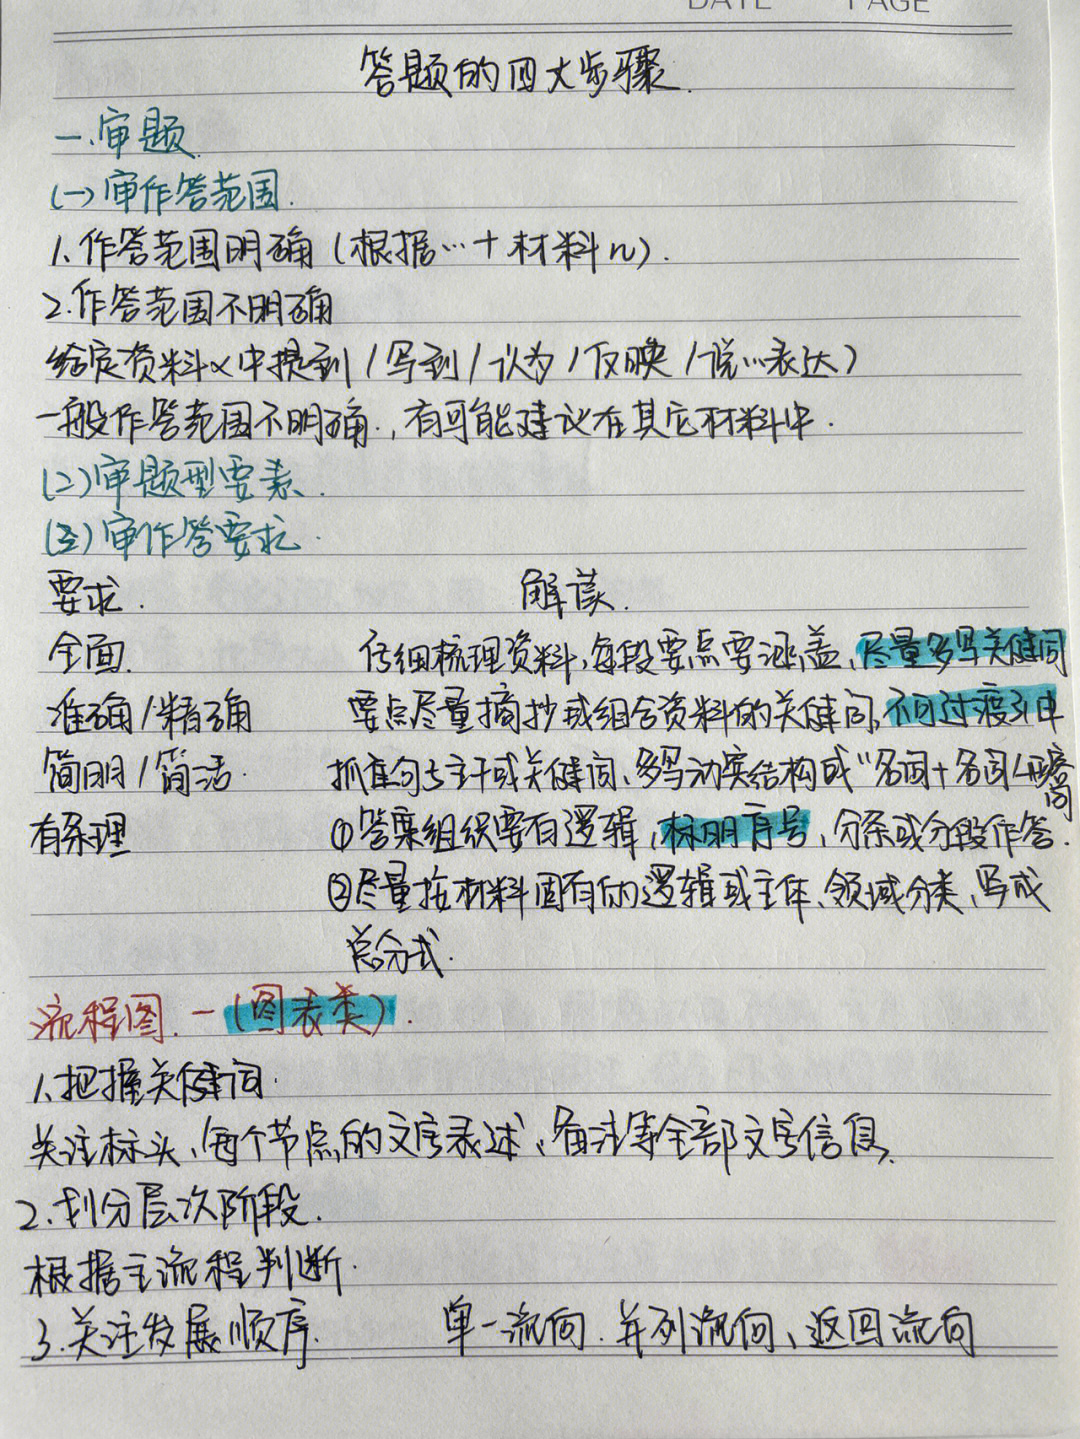 DATE PAGE
答题的四大步骤.
一.审题.
(一)审作答范围.
1.作答范围明确(根据…+材料n).
2.作答范围不明确
给定资料x中提到/写到/认为/反映/说…表达)
一般作答范围不明确.,有可能建议在其它材料中.
(二)审题型要素.
(三)审作答要求.
要求. 解读.
全面. 仔细梳理资料,每段要点要涵盖、尽量多写关键词
准确/精确 要点尽量摘抄或组合资料的关键词,不可过渡引申
简明/简洁. 抓住句子主干或关键词、多写动宾结构或"名词+名词
有条理 ①答案组织要有逻辑,标明序号,分条或分段作答.
②尽量按材料固有的逻辑或主体、领域分类、写成
总分式.
流程图.—(图表类).
1.把握关键词.
关注标头、每个节点的文字表述、备注等全部文字信息.
2.划分层次阶段.
根据主流程判断.
3.关注发展顺序. 单一流向.并列流向、返回流向